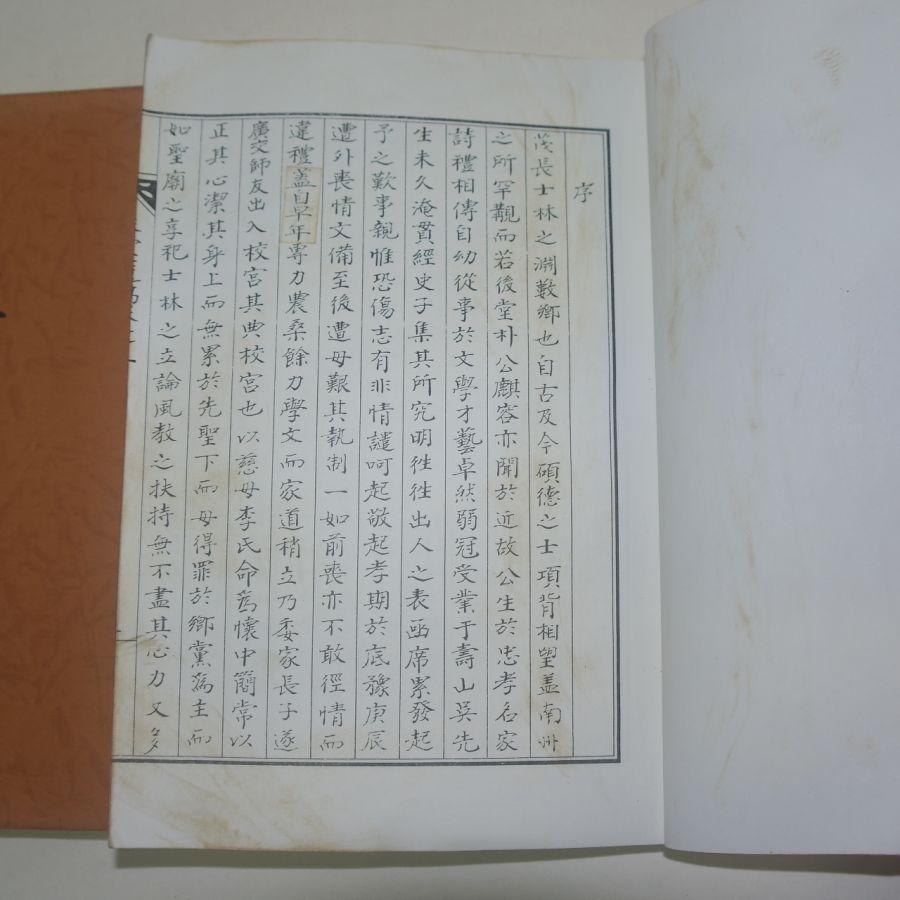 序
茂長士林之淵藪鄉也自古及今碩德之士項背相望盖南州
之所罕覯而若後堂朴公麒容亦聞於近故公生於忠孝名家
詩禮相傳自幼從事於文學才藝卓然弱冠受業于壽山吳先
生未久淹貫經史子集其所究明徃徃出人之表函席累發起
予之歎事親惟恐傷志有非情譴呵起敬起孝期於底豫庚辰
遭外喪情文備至後遭母艱其執制一如前喪亦不敢徑情而
違禮盖自早年專力農桑餘力學文而家道稍立乃委家長子遂
廣交師友出入校宮其典校宮也以慈母李氏命爲懷中簡常以
正其心潔其身上而無累於先聖下而毋得罪於鄉黨爲主而
如聖廟之享祀士林之立論風教之扶持無不盡其心力又多